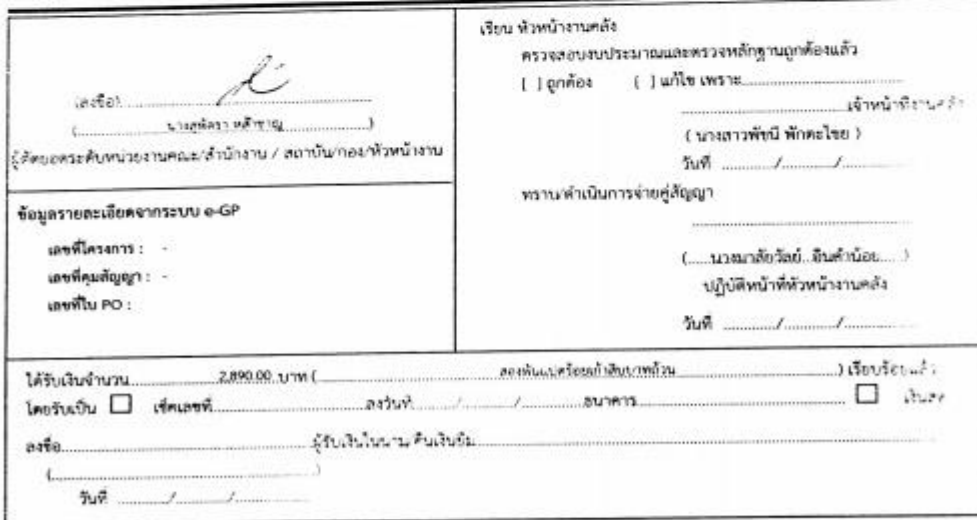 (ลงชื่อ)
(นางสุพัตรา หล้าชาญ)
ผู้ตัดยอดระดับหน่วยงานคณะ/สำนักงาน / สถาบัน/กอง/หัวหน้างาน
ข้อมูลรายละเอียดจากระบบ e-GP
เลขที่โครงการ : -
เลขที่คุมสัญญา : -
เลขที่ใบ PO :
เรียน หัวหน้างานคลัง
ตรวจสอบงบประมาณและตรวจหลักฐานถูกต้องแล้ว
[ ] ถูกต้อง ( ) แก้ไข เพราะ
เจ้าหน้าที่งานคลัง
( นางสาวพัชนี พักตะไชย )
วันที่ ........../........../..........
ทราบ/ดำเนินการจ่ายคู่สัญญา
(.....นวงมาลัยวัลย์...อินคำน้อย.....)
ปฏิบัติหน้าที่หัวหน้างานคลัง
วันที่ ........../........../..........
ได้รับเงินจำนวน 2,890.00 บาท ( สองพันแปดร้อยเก้าสิบบาทถ้วน ) เรียบร้อยแล้ว
โดยรับเป็น ☐ เช็คเลขที่ ลงวันที่ / / ธนาคาร ☐ เงินสด
ลงชื่อ ผู้รับเงินในนาม/คืนเงินยืม
( )
วันที่ ........../........../..........